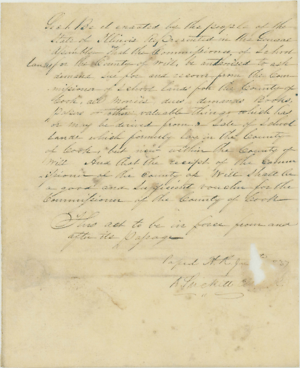 Sec 1 Be it enacted by the people of the
State of Illinois Represented in the General
Assembly That the Commissioner of School
Lands for the County of Will, be authorised to ask
demand sue for and recover from the Com
missioner of School Lands for the County of
Cook, all monies dues demands Books
Notes & other valuable things which has
or may be derived from a sale of School
Lands which formerly lay in the County
of Cook, but now within the County of
Will. And that the receipt of the Commis
sioner of the County of Will shall be
a good and sufficient voucher for the
Commissioner of the County of Cook
This act to be in force from and
after its Passage
Passd H. R.